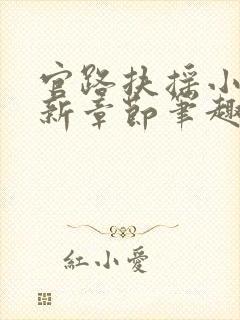 官路扶摇小
新章節筆趣
紅小愛